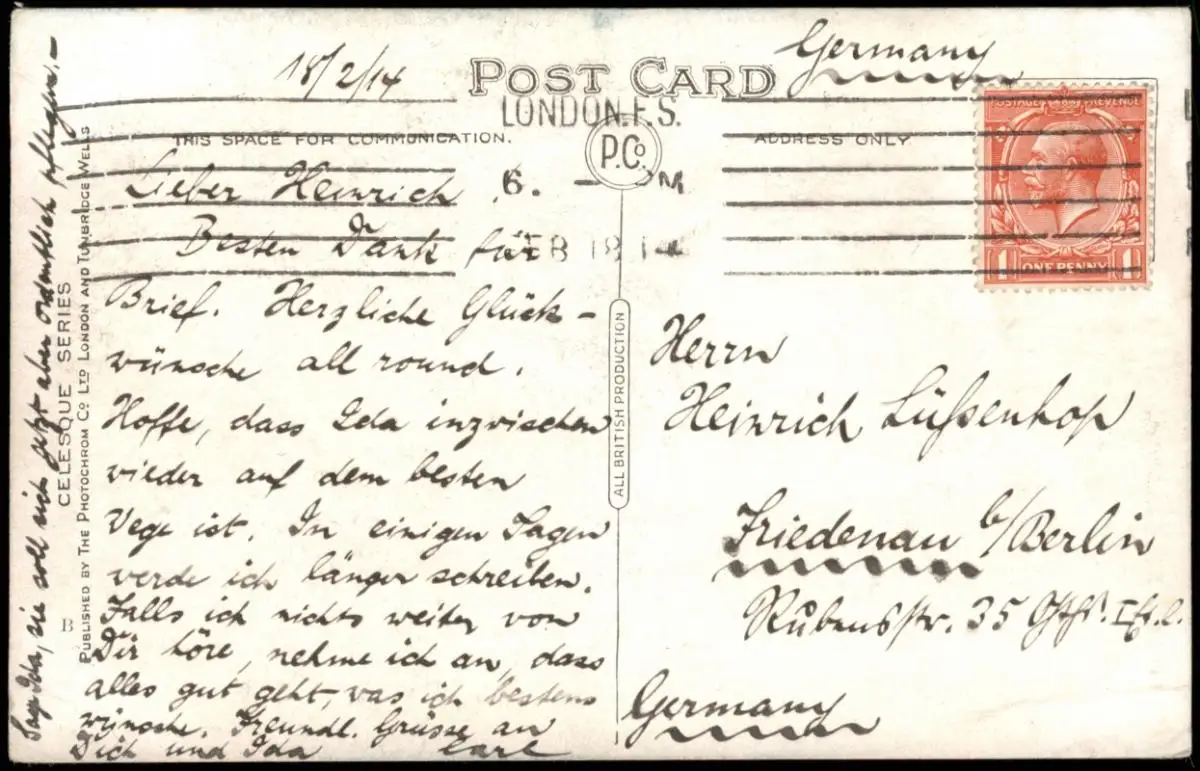 18/2/14
Germany
POST CARD
LONDON.F.S.
THIS SPACE FOR COMMUNICATION.
ADDRESS ONLY
P.Co.
POSTAGE & REVENUE
6. – PM
FEB 18 14
1 ONE PENNY 1
Lieber Heinrich
Besten Dank für
Brief. Herzliche Glück-
wünsche all round.
Hoffe, dass Ida inzwischen
wieder auf dem besten
Wege ist. In einigen Tagen
werde ich länger schreiben.
Falls ich nichts weiter von
Dir höre, nehme ich an, dass
alles gut geht, was ich bestens
wünsche. Freundl. Grüsse an
Dich und Ida Carl
Sage Ida, sie soll sich jetzt aber ordentlich pflegen.–
CELESQUE SERIES
PUBLISHED BY THE PHOTOCHROM CO LTD LONDON AND TUNBRIDGE WELLS
B
ALL BRITISH PRODUCTION
Herrn
Heinrich Lüßenhop
Friedenau b/Berlin
Rubensstr. 35
Germany